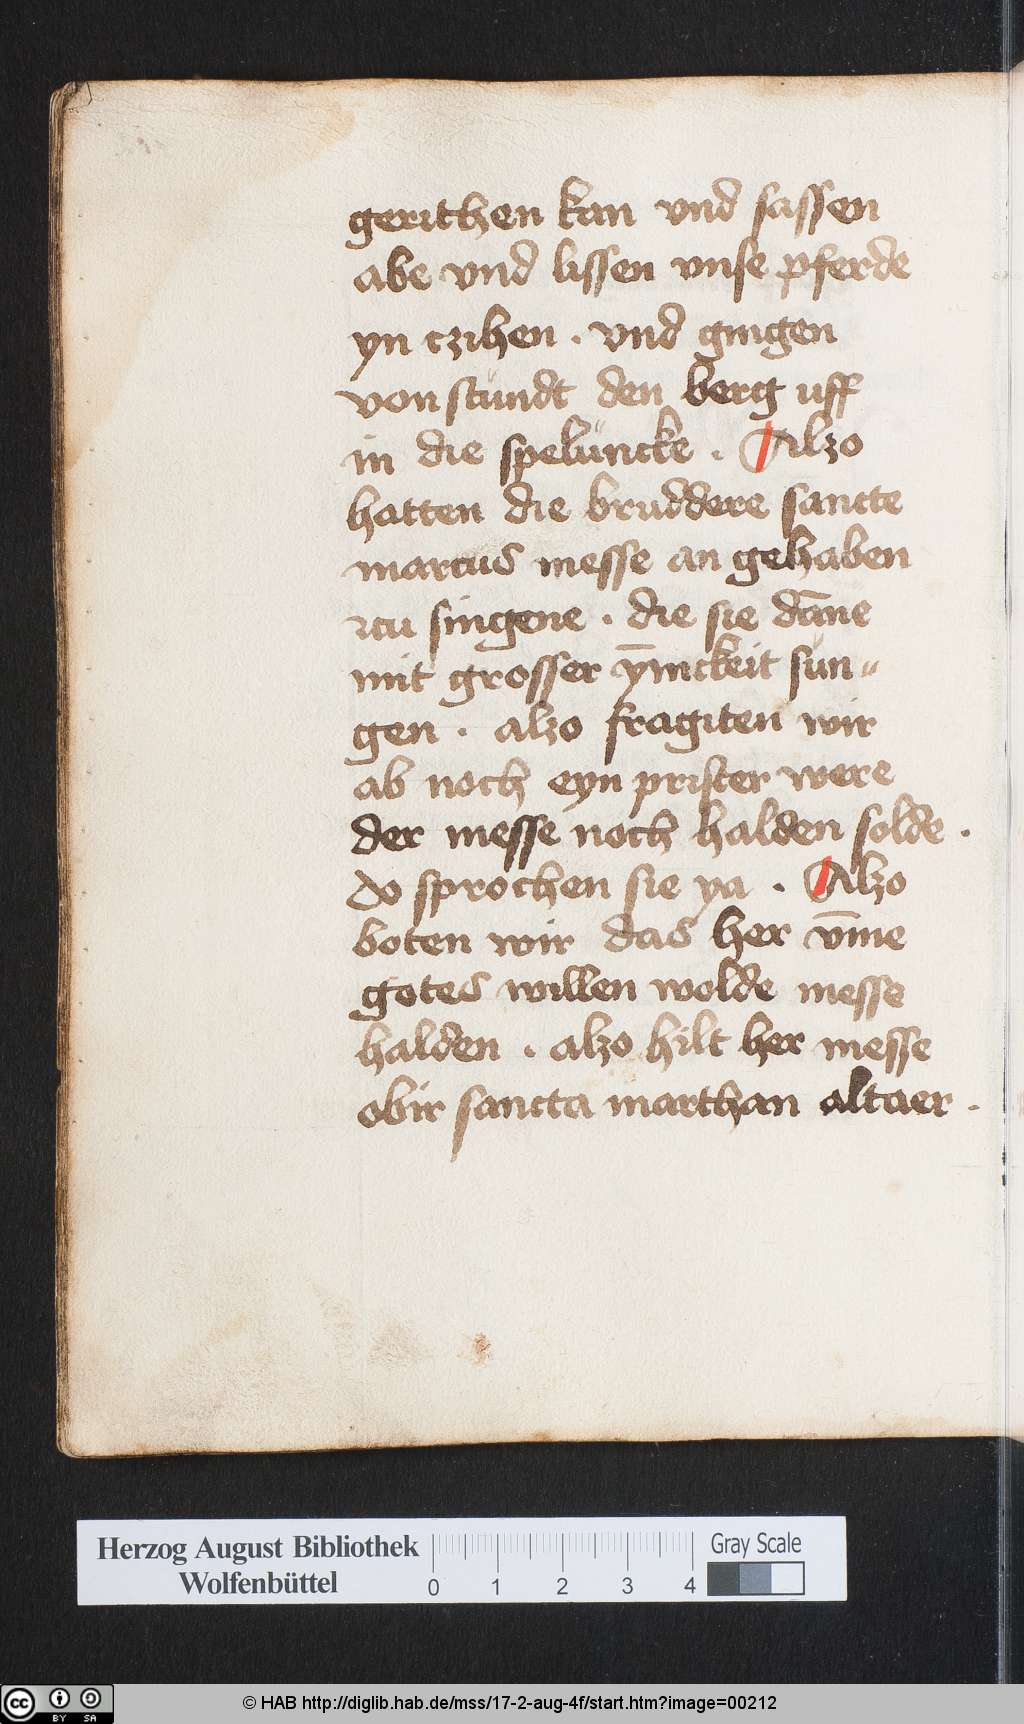 gerithen kan vnd sassen
abe vnd lissen vnse pferde
yn czihen . vnd gingen
von stundt den berg uff
in die speluncke . Alzo
hatten die bruddere sancte
marcus messe an gehaben
zcu singene . die sie dāne
mit grosser ȳnickeit sun„
gen . alzo fragiten wir
ab noch eyn prister were
der messe noch halden solde .
do sprochen sie ya . Alzo
boten wir das her v̄me
gotes willen wolde messe
halden . alzo hilt her messe
obir sancta marthan altaer .
Herzog August Bibliothek
Wolfenbüttel
0 1 2 3 4
Gray Scale
cc BY SA
© HAB http://diglib.hab.de/mss/17-2-aug-4f/start.htm?image=00212